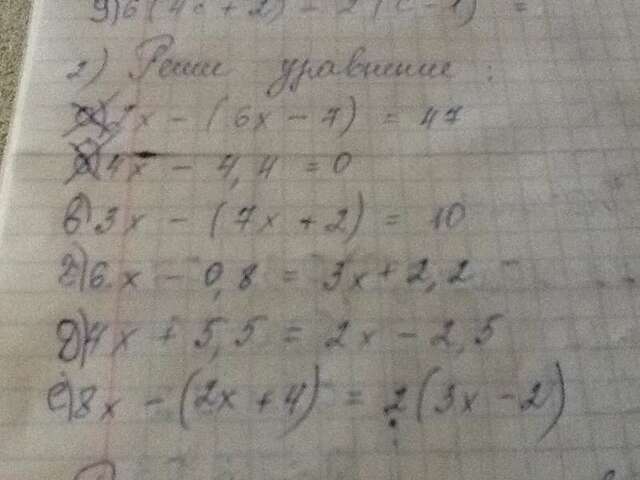 9) 6(4c+2) - 2(c-1) =
2) Реши уравнение:
а) 2x - (6x - 7) = 47
б) 4x - 4,4 = 0
в) 3x - (7x + 2) = 10
г) 6x - 0,8 = 3x + 2,2
д) 4x + 5,5 = 2x - 2,5
е) 8x - (2x + 4) = 2(3x - 2)